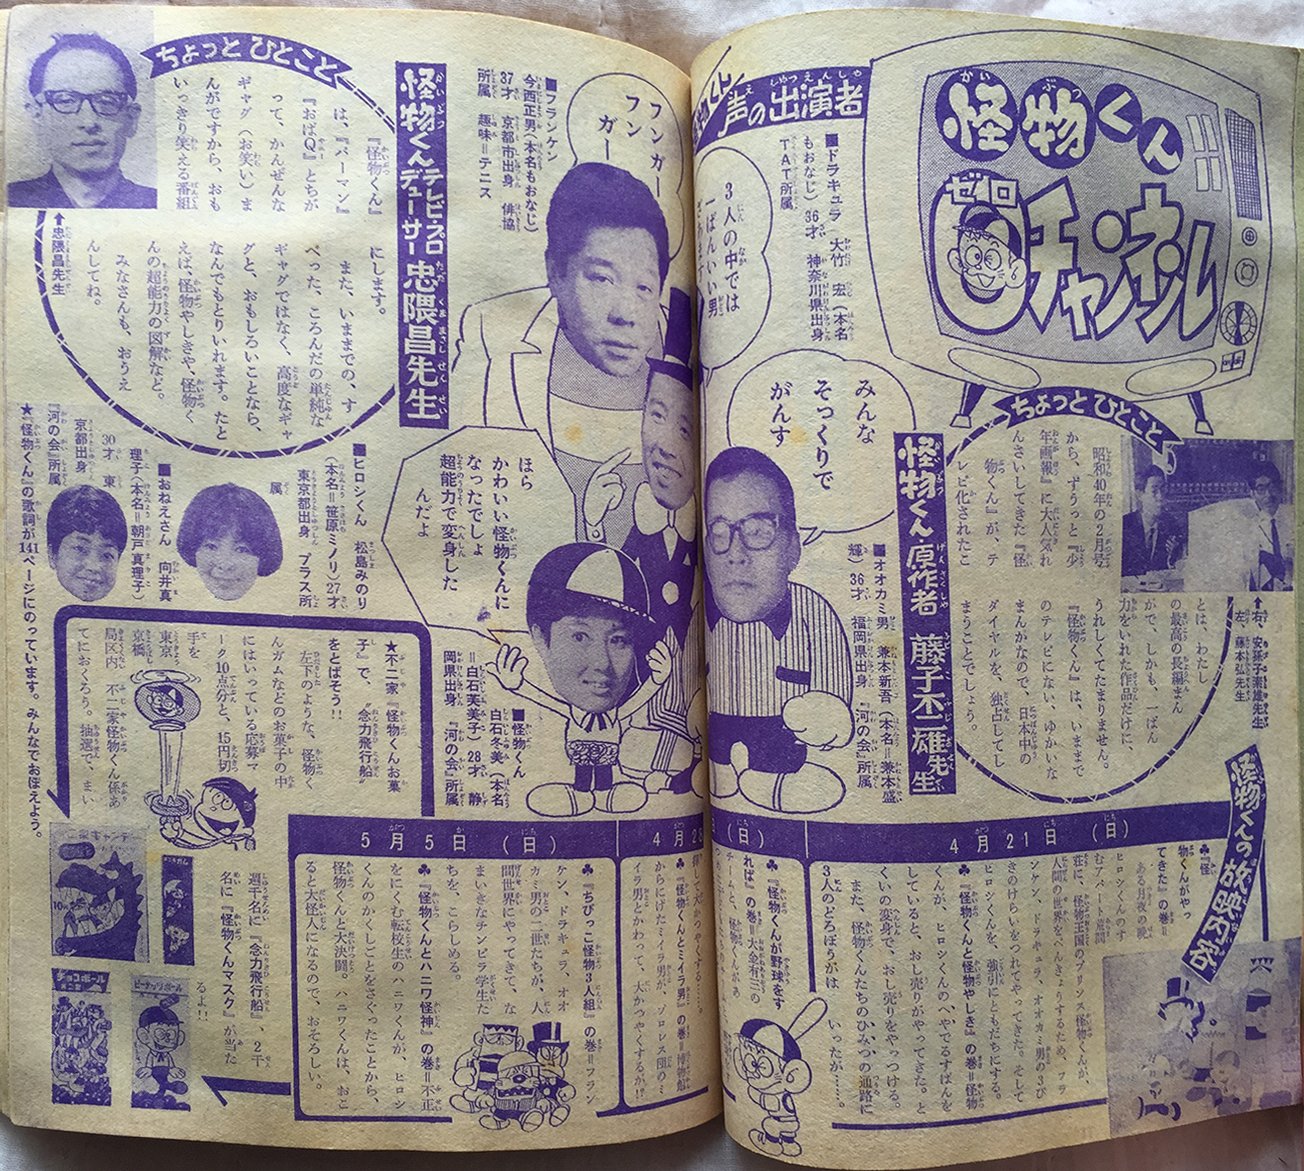 怪物くん
ゼロチャンネル
声の出演者
■ドラキュラ 大竹 宏(本名
もおなじ)36才 神奈川県出身
TAT所属
3人の中では
一ばんいい男
みんな
そっくりで
がんす
ちょっとひとこと
怪物くん・原作者 藤子不二雄先生
昭和40年の2月号
から、ずうっと『少
年画報』に大人気れ
んさいしてきた『怪
物くん』が、テ
レビ化されたこ
とは、わたし
の最高の長編まん
がで、しかも、一ばん
力をいれた作品だけに、
うれしくてたまりません。
『怪物くん』は、いままで
のテレビにない、ゆかいな
まんがなので、日本中の
ダイヤルを、独占してし
まうことでしょう。
↑右、安孫子素雄先生
左、藤本弘先生
■オオカミ男 兼本新吾(本名=兼本盛
輝)36才 福岡県出身 『河の会』所属
フンガー
フン
ガー
■フランケン
今西正男(本名もおなじ)
37才 京都市出身 俳協
所属 趣味=テニス
怪物くんテレビ・プロデューサー 忠隈昌先生
ちょっとひとこと
『怪物くん』
は、『パーマン』
『おばQ』とちが
って、かんぜんな
ギャグ(お笑い)ま
んがですから、おも
いっきり笑える番組
にします。
また、いままでの、す
べった、ころんだの単純な
ギャグではなく、高度なギャ
グと、おもしろいことなら、
なんでもとりいれます。たと
えば、怪物やしきや、怪物く
んの超能力の図解など。
みなさんも、おうえ
んしてね。
↑忠隈昌先生
ほら
かわいい怪物くんに
なったでしょ
超能力で変身した
んだよ
■怪物くん
白石冬美(本名
=白石芙美子)28才 静
岡県出身 『河の会』所属
■ヒロシくん 松島みのり
(本名=笹原ミノリ)27才
東京都出身 プラス所
属
■おねえさん 向井真
理子(本名=朝戸真理子)
30才 東
京都出身
『河の会』所属
★『怪物くん』の歌詞が141ページにのっています。みんなでおぼえよう。
★不二家『怪物くんお菓
子』で、念力飛行船
をとばそう!!
左下のような、怪物く
んガムなどのお菓子の中
にはいっている応募マ
ーク10点分と、15円切
手を
東京
京橋
局区内 不二家怪物くん係あ
てにおくろう。抽選で、まい
週千名に『念力飛行船』、2千
名に『怪物くんマスク』が当た
るよ!!
チョコボール
ピーナッツボール
怪物くんの放映内容
4月21日(日)
♣『怪
物くんがやっ
てきた』の巻=
ある月夜の晩
ヒロシくんのす
むアパート荒間
荘に、怪物王国のプリンス怪物くんが、
人間の世界をべんきょうするため、フラ
ンケン、ドラキュラ、オオカミ男の3び
きのけらいをつれてやってきた。そして
ヒロシくんを、強引にともだちにする。
♣『怪物くんと怪物やしき』の巻=怪物
くんが、ヒロシくんのへやでるすばんを
していると、おし売りがやってきた。と
くいの変身で、おし売りをやっつける。
また、怪物くんたちのひみつの通路に
3人のどろぼうがは いったが……。
(日)
♣『怪物くんが野球をす
れば』の巻=大金有三の
チームと、怪物くんがあ
4月28
♣『怪物くんとミイラ男』の巻=博物館
からにげたミイラ男が、ソロレス団のミ
イラ男とかわって、大かつやくするが!!
5月5日(日)
♣『ちびっこ怪物3人組』の巻=フラン
ケン、ドラキュラ、オオ
カミ男の二世たちが、人
間世界にやってきて、な
まいきなチンピラ学生た
ちを、こらしめる。
♣『怪物くんとハニワ怪神』の巻=不正
をにくむ転校生のハニワくんが、ヒロシ
くんのかくしごとをさぐったことから、
怪物くんと大決闘。ハニワくんは、おこ
ると大怪人になるので、おそろしい。